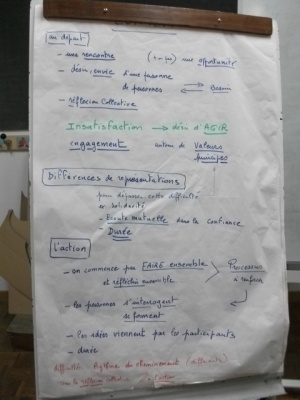 au départ
- une rencontre (→ une) une opportunité
- désir, envie d'une personne
de personnes ⇄ Besoin
- réflexion Collective
Insatisfaction → désir d'AGIR
engagement autour de Valeurs
principes
Différences de représentations
pour dépasser cette difficulté
et solidarité
- Ecoute mutuelle dans la confiance
Durée
L'action
- on commence par FAIRE ensemble
et réfléchir ensemble
Processus
à renforcer
- les personnes s'interrogent
se forment
- les idées viennent par les participants
- durée
difficulté Rythme de cheminement (différents)
sur la réflexion l'action